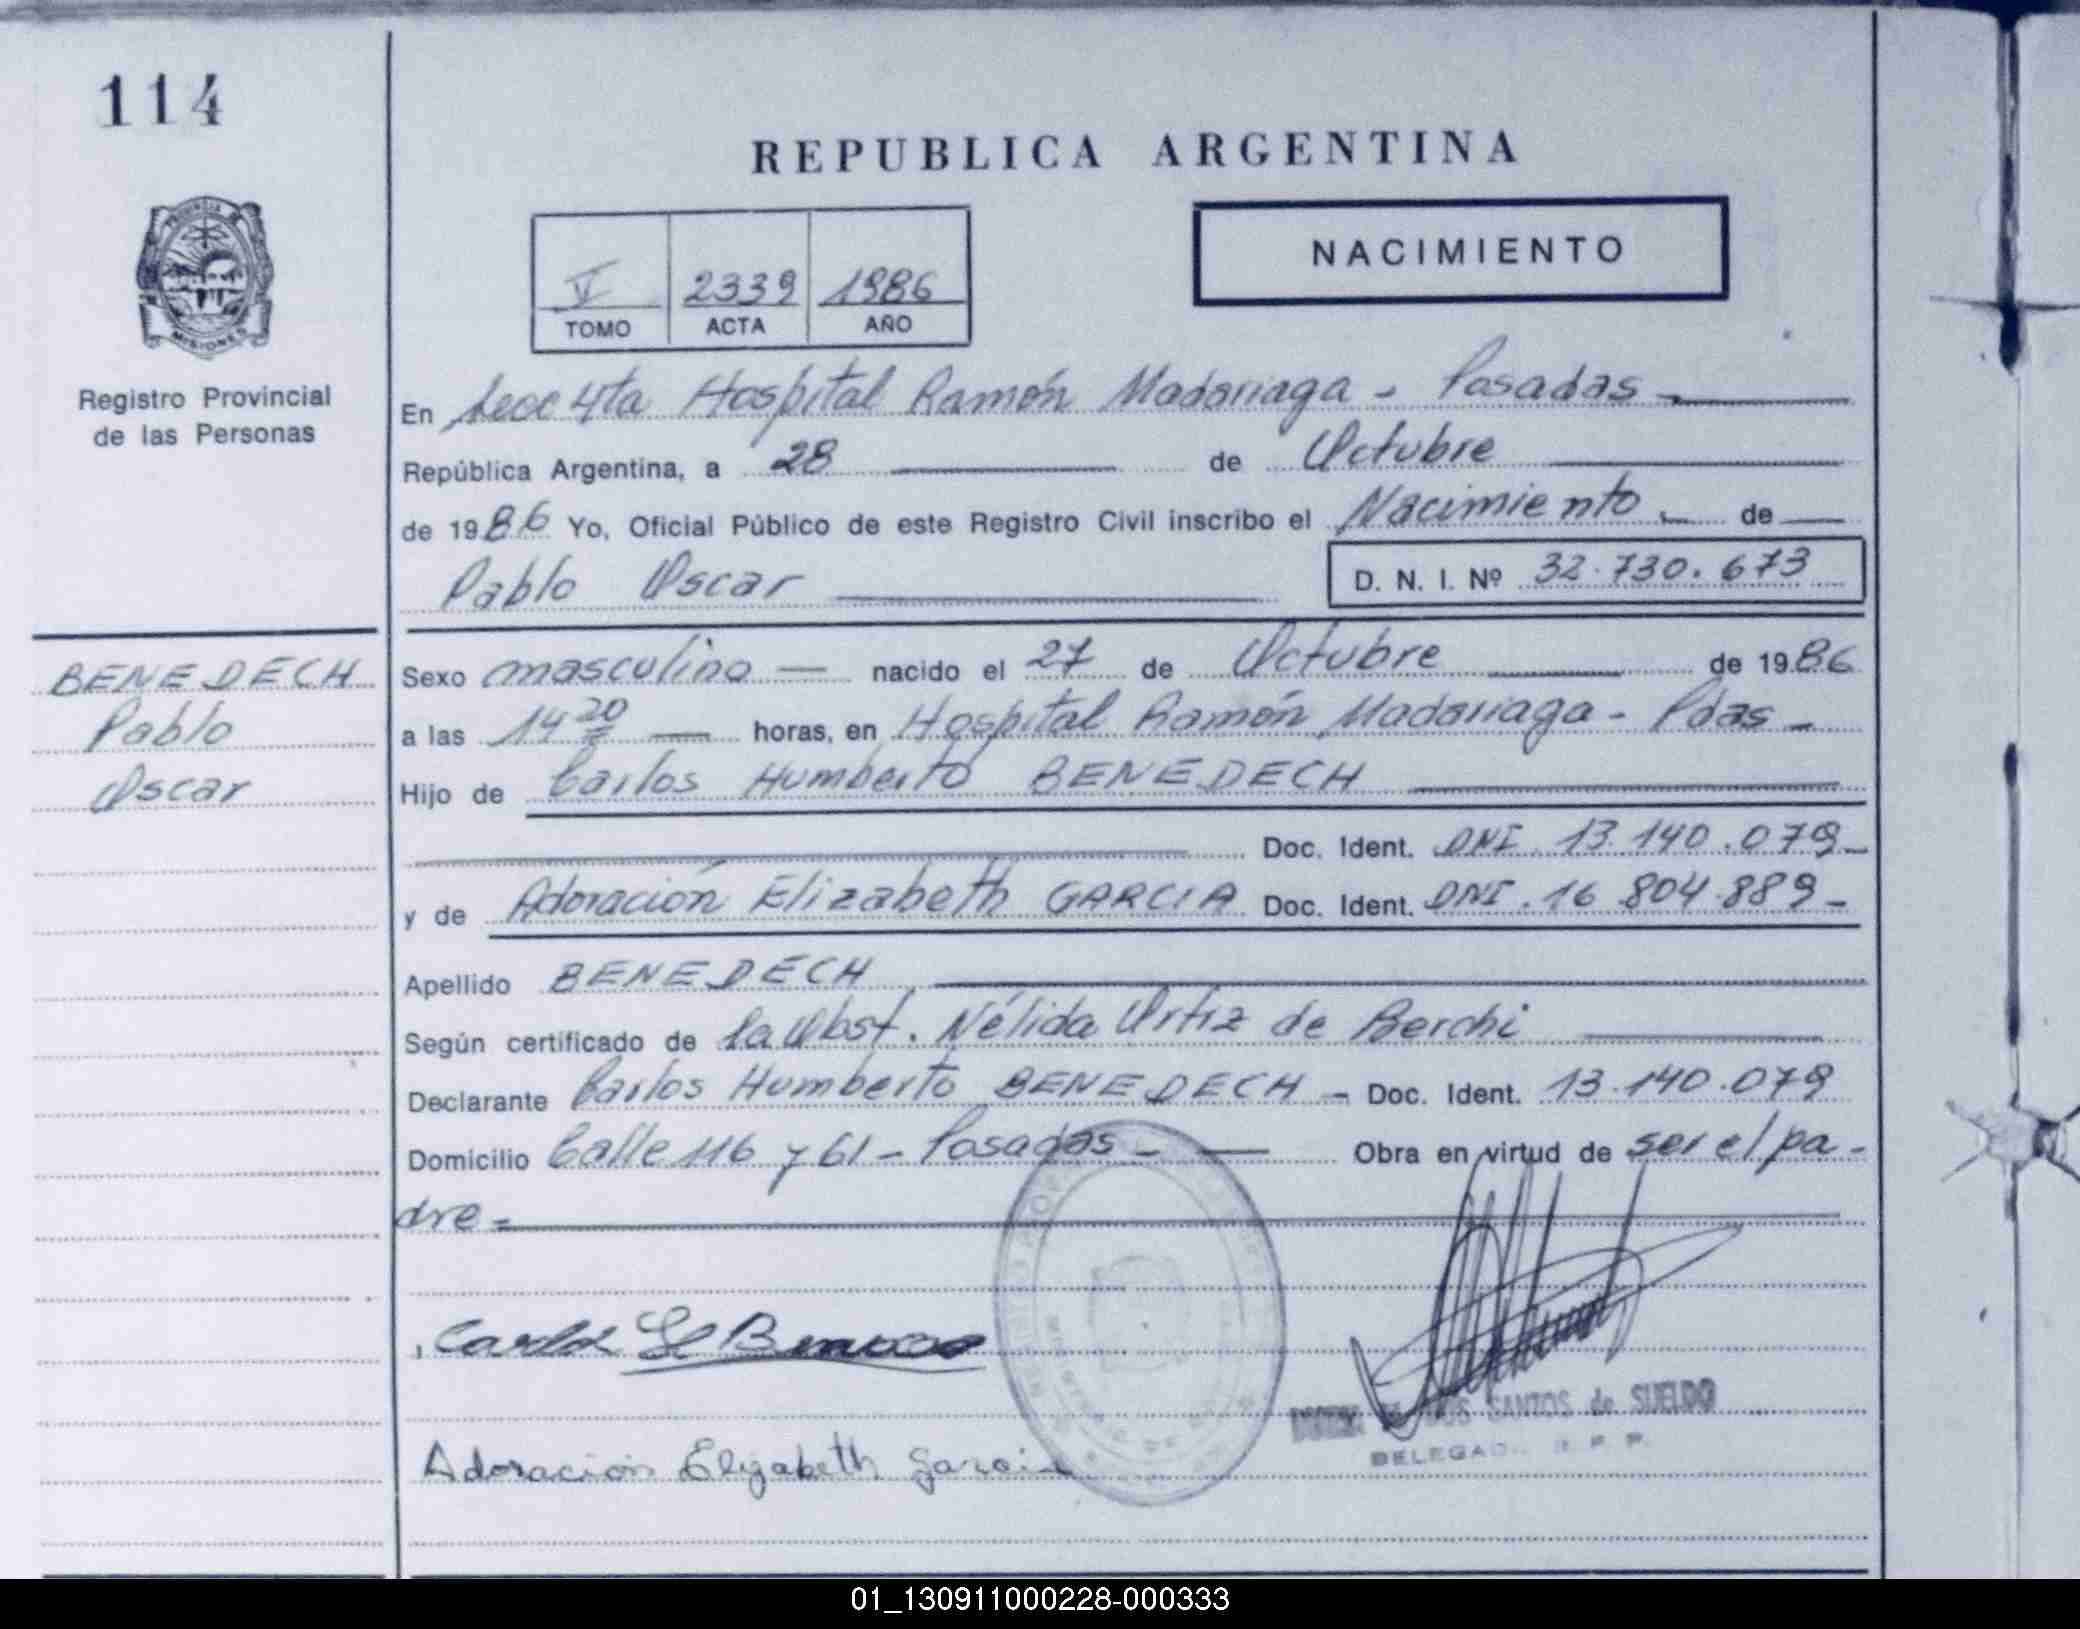 114
REPUBLICA ARGENTINA
NACIMIENTO
V 2339 1986
TOMO ACTA AÑO
PROVINCIA DE
MISIONES
Registro Provincial
de las Personas
En Secc 4ta Hospital Ramón Madariaga - Posadas
República Argentina, a 28 de Octubre
de 1986 Yo, Oficial Público de este Registro Civil inscribo el Nacimiento de
Pablo Oscar D. N. I. Nº 32.730.673
BENEDECH
Pablo
Oscar
Sexo masculino — nacido el 27 de Octubre de 1986
a las 14 20 — horas, en Hospital Ramón Madariaga - Pdas -
Hijo de Carlos Humberto BENEDECH
Doc. Ident. DNI 13.140.079-
y de Adoración Elizabeth GARCIA Doc. Ident. DNI. 16.804.889-
Apellido BENEDECH
Según certificado de la Obst. Nélida Ortiz de Berchi
Declarante Carlos Humberto BENEDECH - Doc. Ident. 13.140.079
Domicilio Calle 116 y 61 - Posadas - — Obra en virtud de ser el pa-
dre -
Carlos H Benedech
Adoración Elizabeth Garcia
SANTOS de SUELDO
DELEGADA R. P. P.
01_130911000228-000333